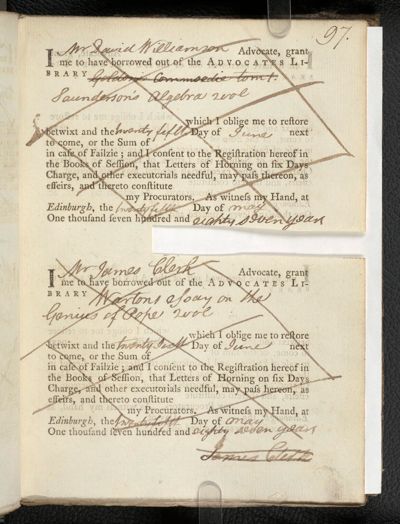 97.
I Mr David Williamson Advocate, grant
me to have borrowed out of the ADVOCATES LI-
BRARY Goldonis Commoedie tom 1.
Saunderson's Algebra 2 vol
which I oblige me to restore
betwixt and the twenty fifth Day of June next
to come, or the Sum of
in case of Failzie; and I consent to the Registration hereof in
the Books of Session, that Letters of Horning on six Days
Charge, and other executorials needful, may pass thereon, as
effeirs, and thereto constitute
my Procurators. As witness my Hand, at
Edinburgh, the twenty fifth Day of may
One thousand seven hundred and eighty seven years
I Mr James Clerk Advocate, grant
me to have borrowed out of the ADVOCATES LI-
BRARY Wartons Essay on the
Genius of Pope 2 vol
which I oblige me to restore
betwixt and the twenty fifth Day of June next
to come, or the Sum of
in case of Failzie; and I consent to the Registration hereof in
the Books of Session, that Letters of Horning on six Days
Charge, and other executorials needful, may pass hereon, as
effeirs, and thereto constitute
my Procurators. As witness my Hand, at
Edinburgh, the twenty fifth Day of may
One thousand seven hundred and eighty seven years
James Clerk